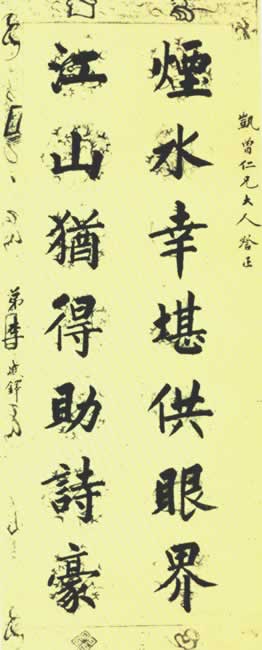 凱曾仁兄大人啓正
煙水幸堪供眼界
江山猶得助詩豪
弟李成鐸